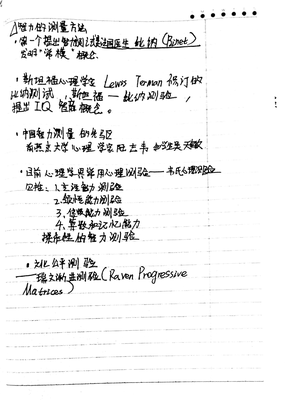 智力的测量方法
·第一个提出智力测试是法国医生 比纳(Binet)
发明"常模"概念
·斯坦福心理学家 Lewis Terman 修订的
比纳测试,斯坦福—比纳测验,
提出IQ 智商概念。
·中国智力测量 的
有燕京大学心理学家陆志韦
·目前心理学界常用心理测验——韦氏心理测验
包括:1.言语能力测验
2.
3.
4.算数和记忆能力
操作性的智力测验
·文化公平测验
——瑞文渐进测验(Raven Progressive
Matrices)